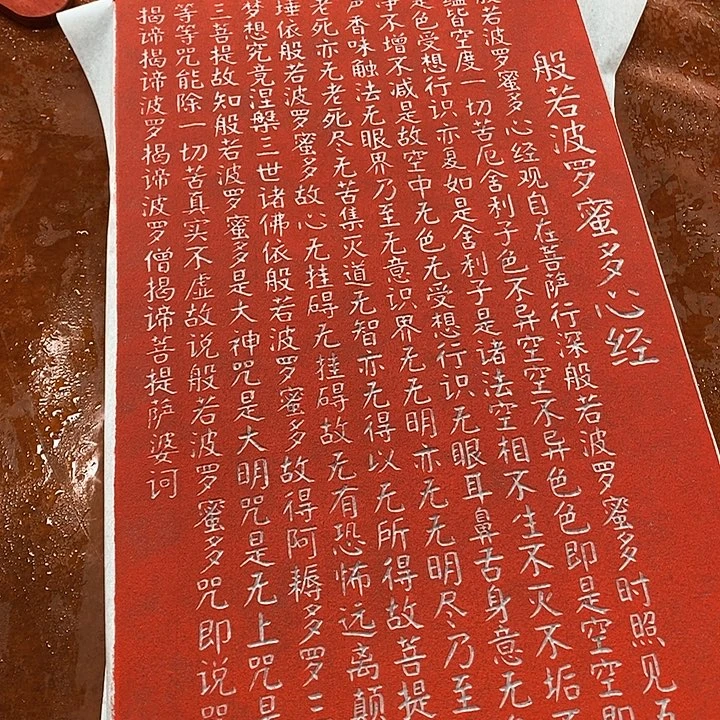 般若波罗蜜多心经
般若波罗蜜多心经观自在菩萨行深般若波罗蜜多时照见五
蕴皆空度一切苦厄舍利子色不异空空不异色色即是空空即
是色受想行识亦复如是舍利子是诸法空相不生不灭不垢不
净不增不减是故空中无色无受想行识无眼耳鼻舌身意无
声香味触法无眼界乃至无意识界无无明亦无无明尽乃至
老死亦无老死尽无苦集灭道无智亦无得以无所得故菩提
埵依般若波罗蜜多故心无挂碍无挂碍故无有恐怖远离颠
梦想究竟涅槃三世诸佛依般若波罗蜜多故得阿耨多罗三
三菩提故知般若波罗蜜多是大神咒是大明咒是无上咒是
等等咒能除一切苦真实不虚故说般若波罗蜜多咒即说咒
揭谛揭谛波罗揭谛波罗僧揭谛菩提萨婆诃